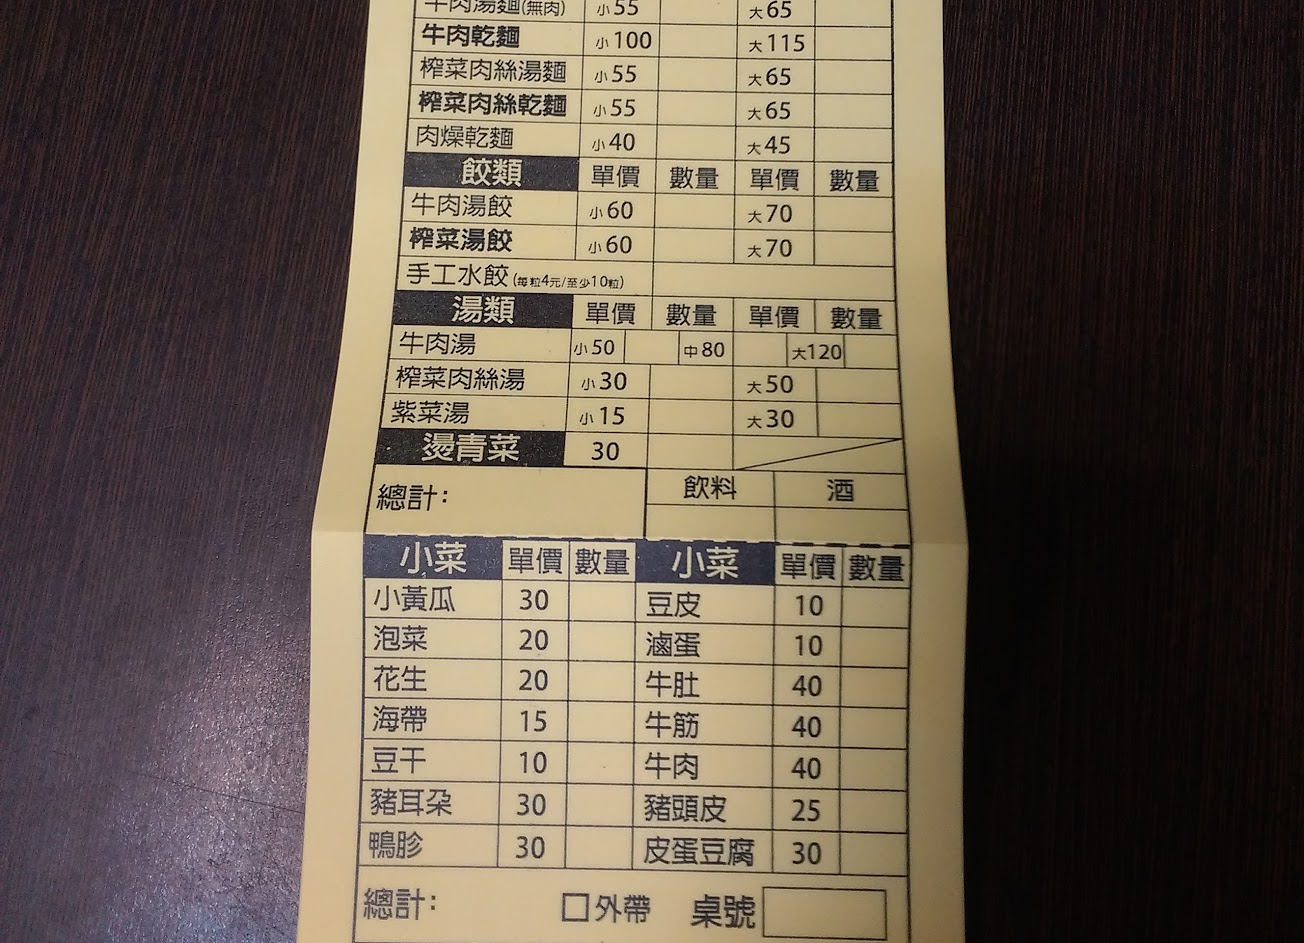 牛肉湯麵(無肉) 小55 大65
牛肉乾麵 小100 大115
榨菜肉絲湯麵 小55 大65
榨菜肉絲乾麵 小55 大65
肉燥乾麵 小40 大45
餃類 單價 數量 單價 數量
牛肉湯餃 小60 大70
榨菜湯餃 小60 大70
手工水餃(每粒4元/至少10粒)
湯類 單價 數量 單價 數量
牛肉湯 小50 中80 大120
榨菜肉絲湯 小30 大50
紫菜湯 小15 大30
燙青菜 30
總計: 飲料 酒
小菜 單價 數量 小菜 單價 數量
小黃瓜 30 豆皮 10
泡菜 20 滷蛋 10
花生 20 牛肚 40
海帶 15 牛筋 40
豆干 10 牛肉 40
豬耳朵 30 豬頭皮 25
鴨胗 30 皮蛋豆腐 30
總計: □外帶 桌號